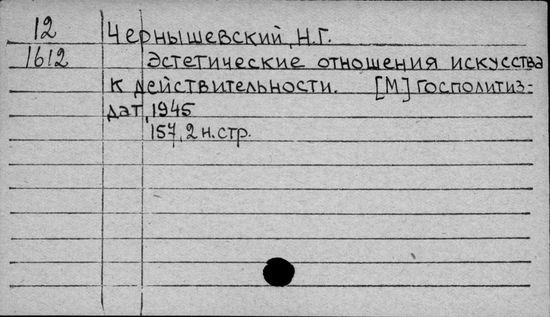 12 Чернышевский, Н.Г.
1612 Эстетические отношения искусства
к действительности. [М] Госполитиз-
дат, 1945
157, 2 н.стр.